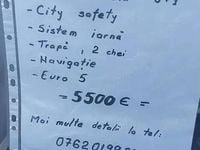 - City safety
- Sistem iarnă
- Trapă, 2 chei
- Navigație
- Euro 5
= 5500 € =
Mai multe detalii la tel: